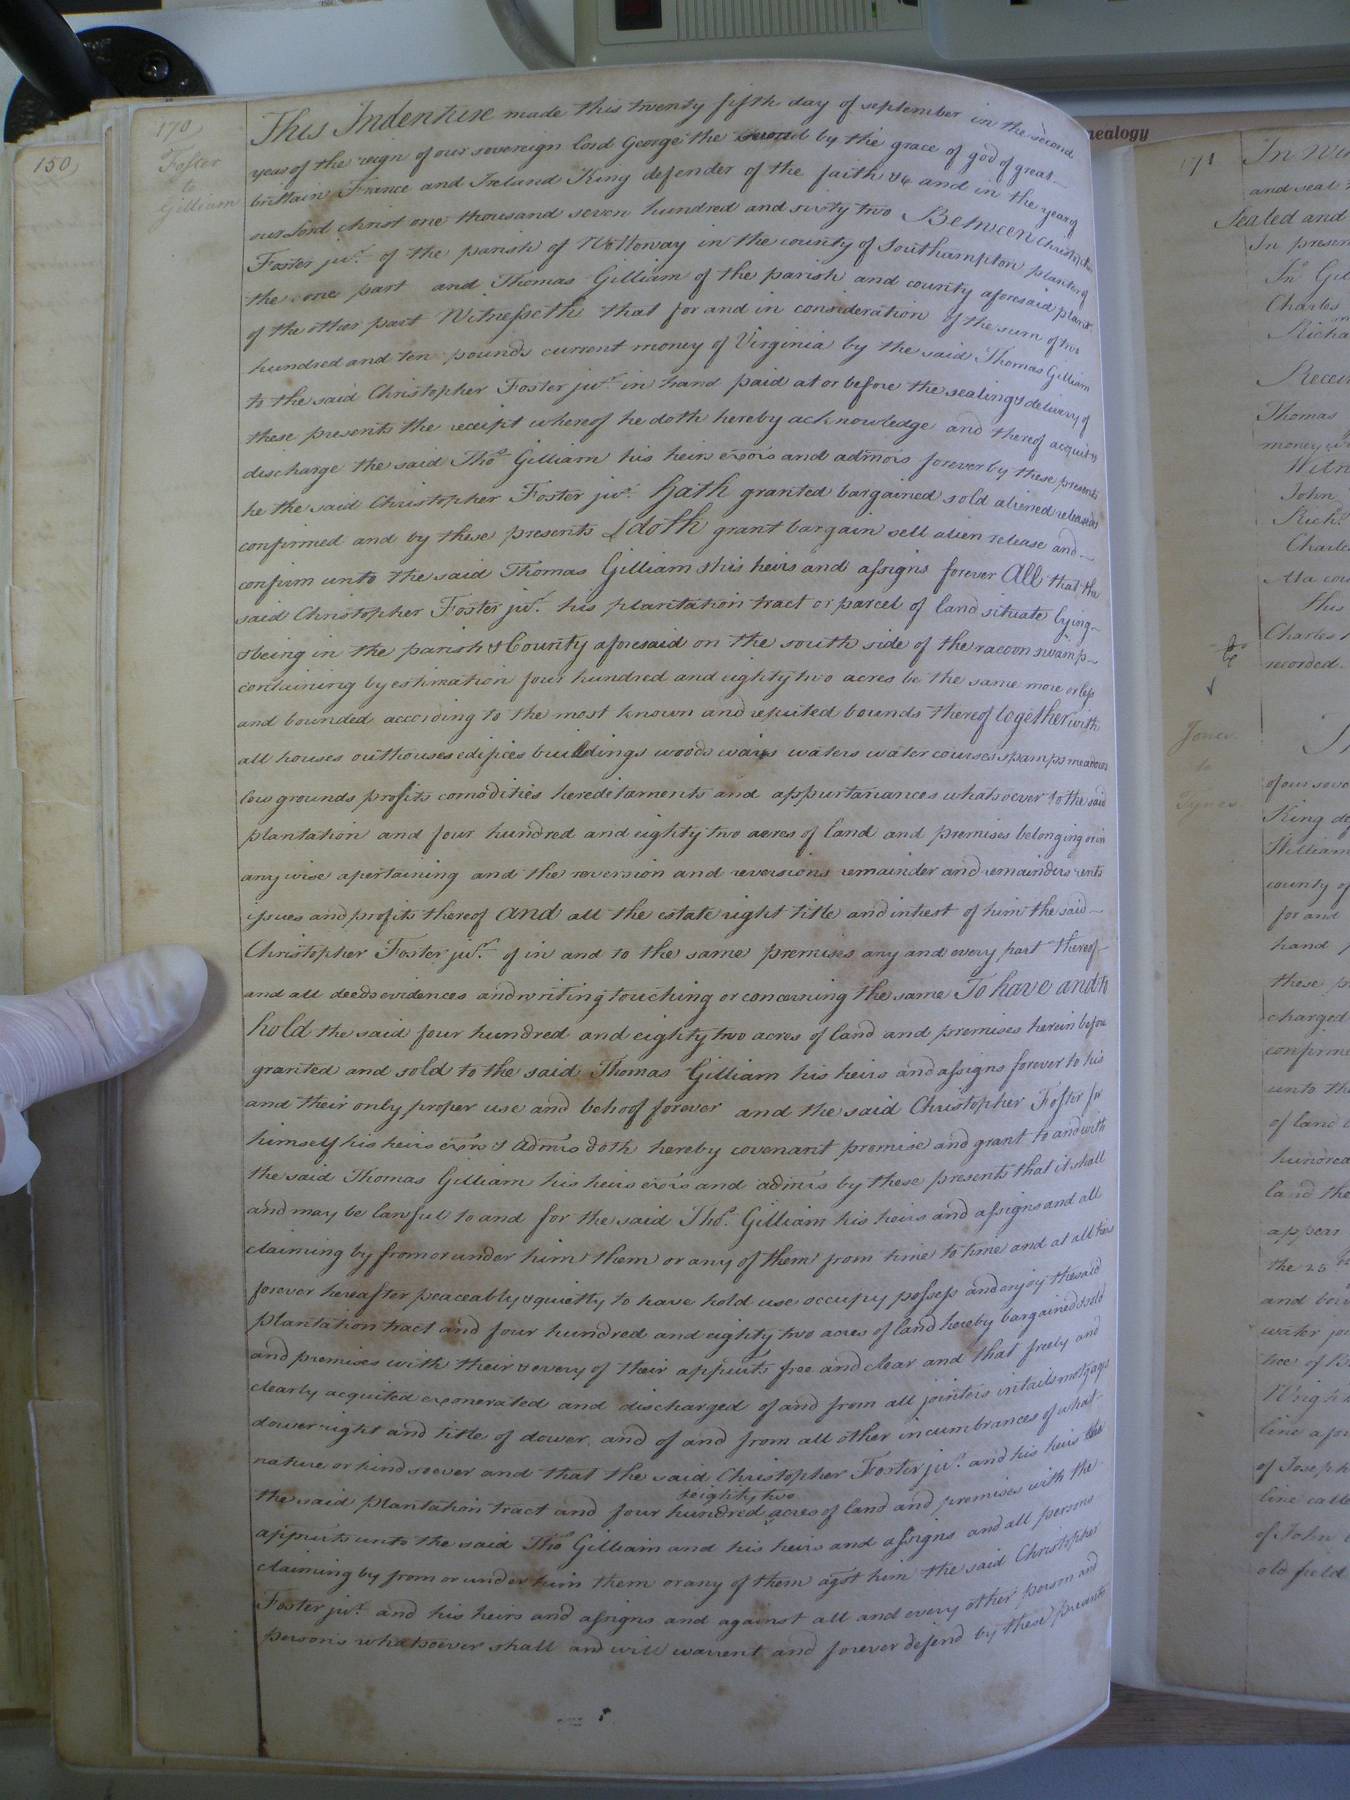 150
170
Foster
to
Gilliam
This Indenture made this twenty fifth day of september in the second
year of the reign of our sovereign lord George the by the grace of god of great
brittain France and Ireland King defender of the faith &c and in the year of
our lord christ one thousand seven hundred and sixty two Between Christopher
Foster jur. of the parish of Nottoway in the county of Southampton planter of
the one part and Thomas Gilliam of the parish and county aforesaid plantr
of the other part Witnesseth that for and in consideration of the sum of two
hundred and ten pounds current money of Virginia by the said Thomas Gilliam
to the said Christopher Foster jur. in hand paid at or before the sealing & delivery of
these presents the receipt whereof he doth hereby acknowledge and thereof acquit &
discharge the said Thos. Gilliam his heirs exors and admors forever by these presents
he the said Christopher Foster jur. hath granted bargained sold aliened released &
confirmed and by these presents doth grant bargain sell alien release and
confirm unto the said Thomas Gilliam & his heirs and assigns forever All that the
said Christopher Foster jur. his plantation tract or parcel of land situate lying
& being in the parish & County aforesaid on the south side of the racoon swamp
containing by estimation four hundred and eighty two acres be the same more or less
and bounded according to the most known and reputed bounds thereof together with
all houses outhouses edifices buildings woods ways waters water courses swamps meadows
low grounds profits comodities heredetaments and appurtanances whatsoever to the said
plantation and four hundred and eighty two acres of land and premises belonging or in
any wise apertaining and the reversion and reversions remainder and remainders rents
issues and profits thereof and all the estate right title and intrest of him the said
Christopher Foster jur. of in and to the same premises any and every part thereof
and all deeds evidences and writing touching or concerning the same To have and to
hold the said four hundred and eighty two acres of land and premises herein before
granted and sold to the said Thomas Gilliam his heirs and assigns forever to his
and their only proper use and behoof forever and the said Christopher Foster jr
himself his heirs exrs & admrs doth hereby covenant promise and grant to and with
the said Thomas Gilliam his heirs exrs and admrs by these presents that it shall
and may be lawful to and for the said Thos. Gilliam his heirs and assigns and all
claiming by from or under him them or any of them from time to time and at all times
forever hereafter peaceably & quietly to have hold use occupy possess and enjoy the said
plantation tract and four hundred and eighty two acres of land hereby bargained & sold
and premises with their & every of their appurts free and clear and that freely and
clearly acquited exonerated and discharged of and from all jointers intails mortgags
dower right and title of dower and of and from all other incumbrances of what
nature or kind soever and that the said Christopher Foster jur. and his heirs the
& eighty two
the said plantation tract and four hundred acres of land and premises with the
appurts unto the said Thos Gilliam and his heirs and assigns and all persons
claiming by from or under him them or any of them agst him the said Christopher
Foster jur. and his heirs and assigns and against all and every other person and
persons whatsoever shall and will warrent and forever defend by these presents
nealogy
171
In Wit
and seal
Sealed and
In presen
Jno Gil
Charles
Richa
Recei
Thomas
money
Witn
John
Richd
Charles
At a cou
this
Charles
recorded.
Jones
to
Tynes
of our sove
King de
William
county of
for and
hand p
these p
charged
confirme
unto the
of land
hundred
land the
appear
the 25
and bou
water
tree of B
Wright
line
of Joseph
line calle
of John
old field